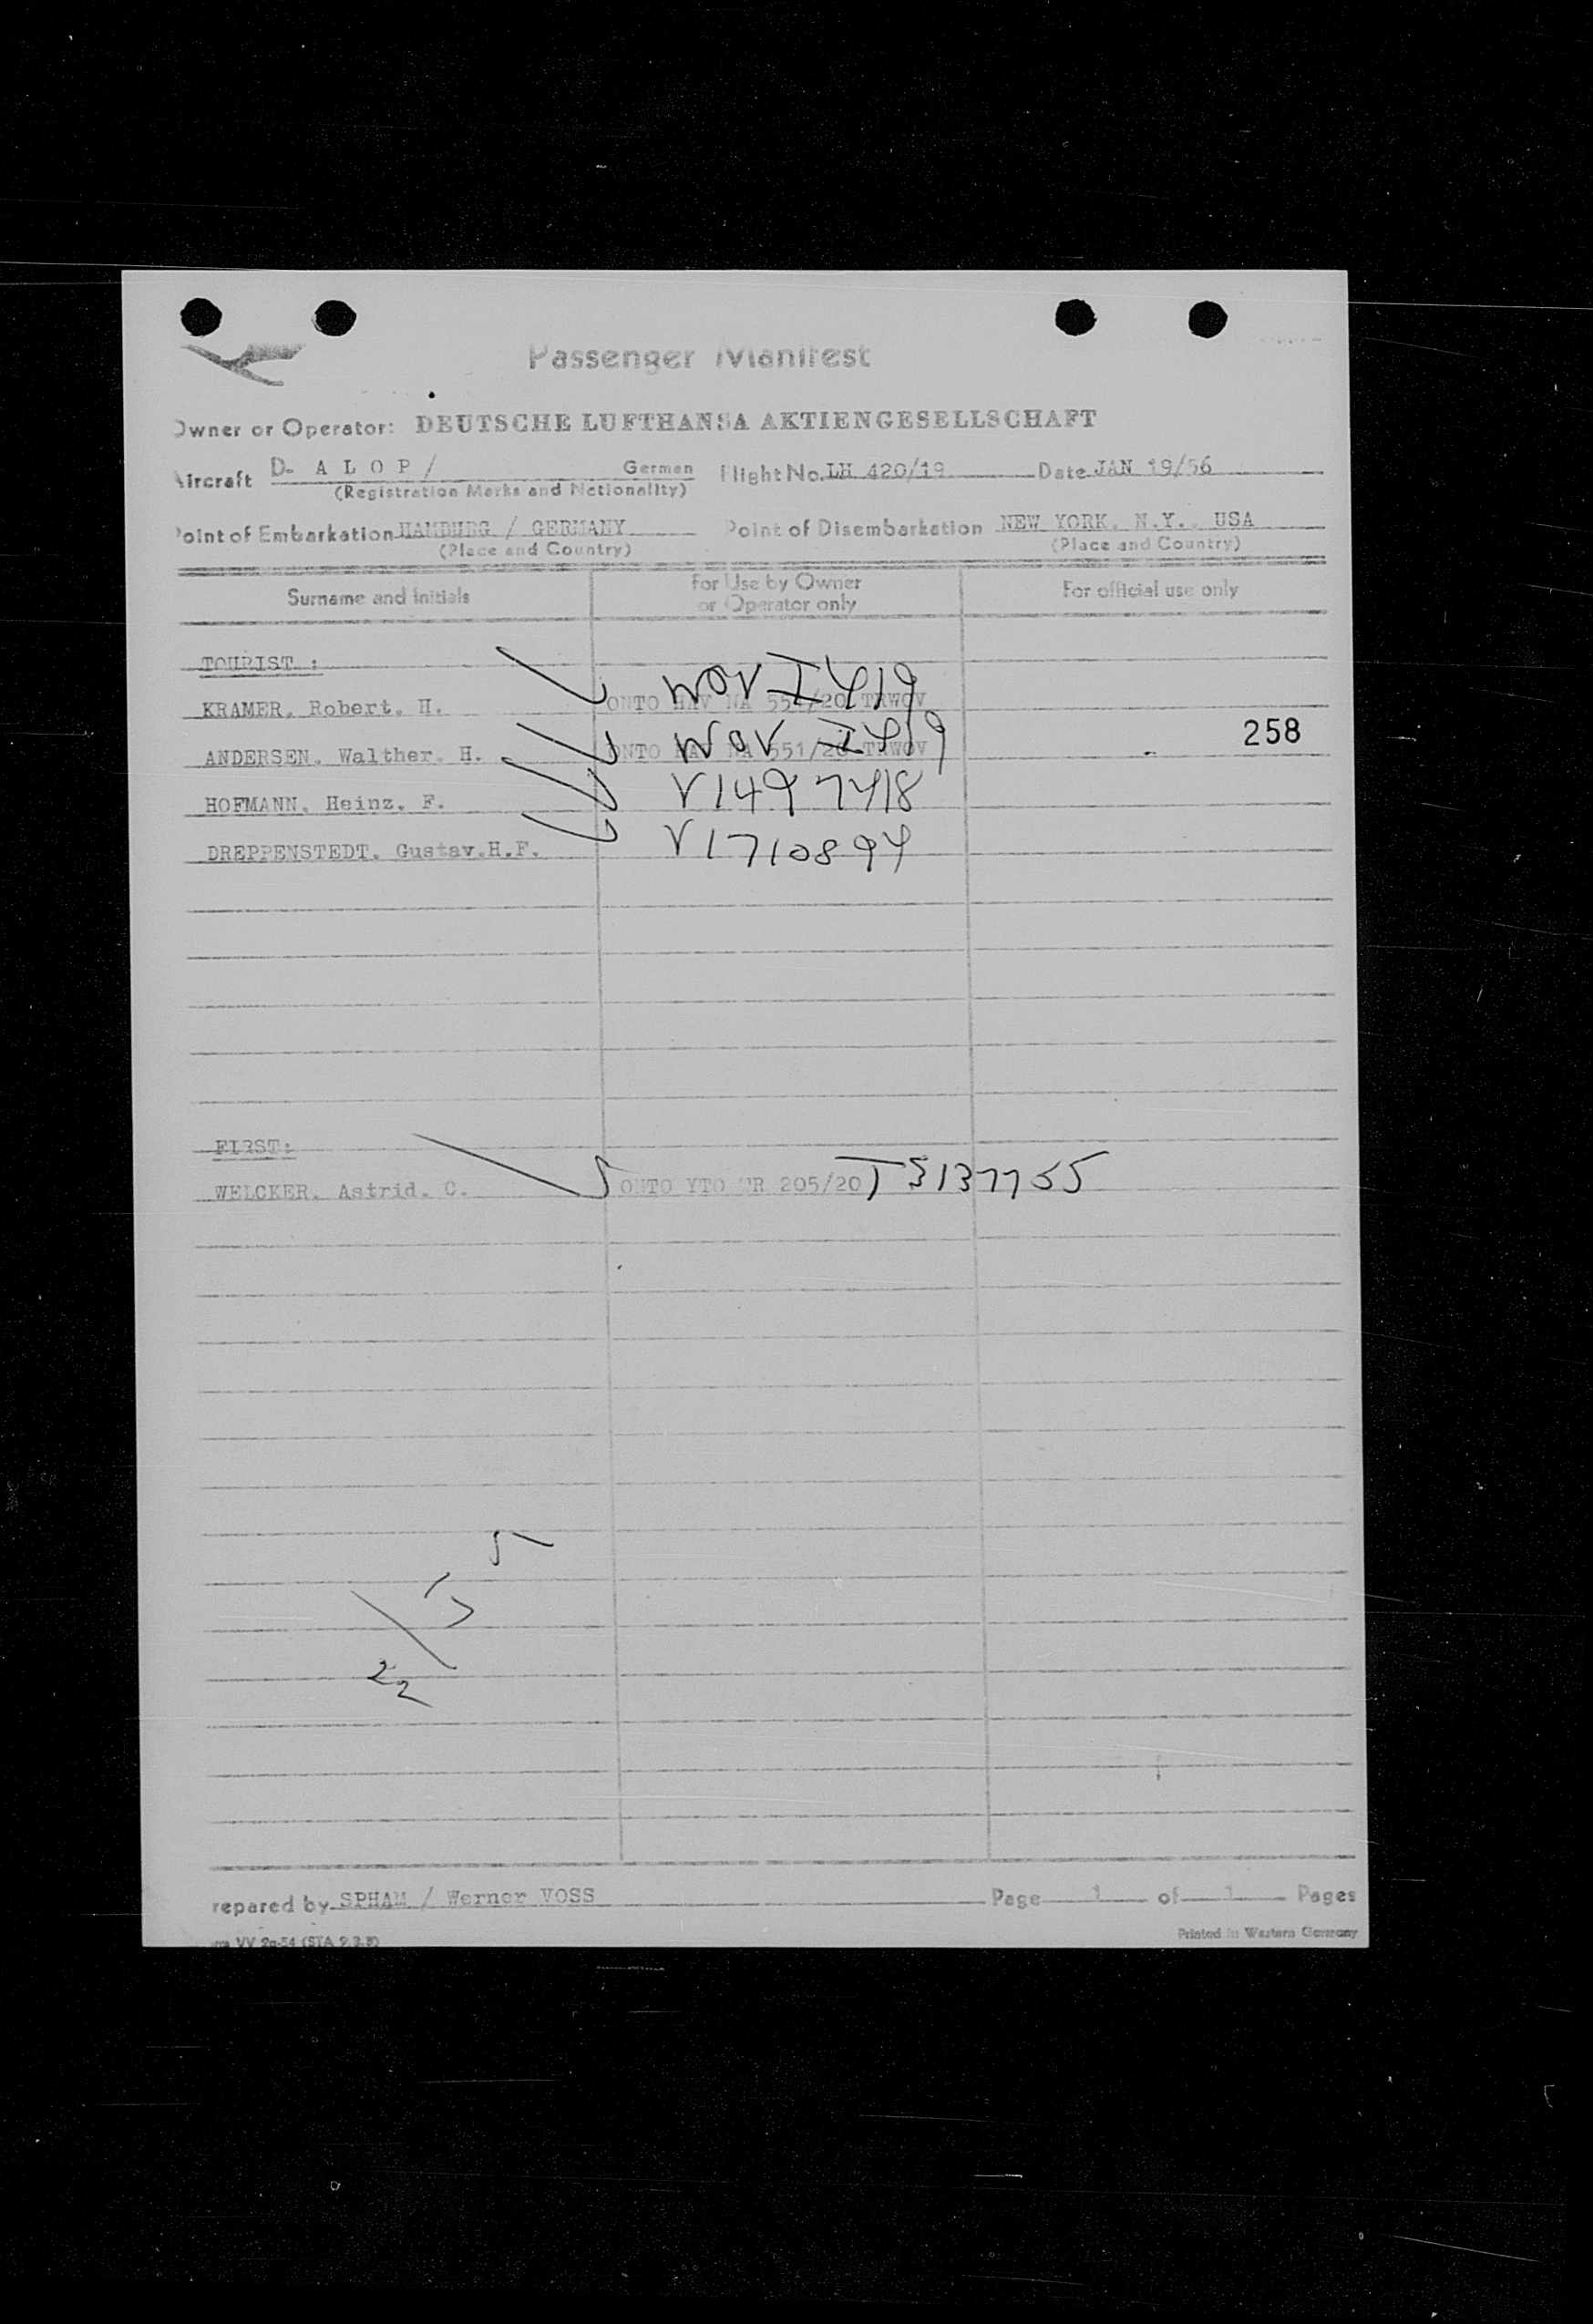 Passenger Manifest
Owner or Operator: DEUTSCHE LUFTHANSA AKTIENGESELLSCHAFT
Aircraft D- A L O P / German Flight No. LH 420/19 Date JAN 19/56
(Registration Marks and Nationality)
Point of Embarkation HAMBURG / GERMANY Point of Disembarkation NEW YORK. N.Y.. USA
(Place and Country) (Place and Country)
Surname and initials For Use by Owner or Operator only For official use only
TOURIST :
KRAMER. Robert. H. ONTO HAV NA 551/20 TRWOV WOV I 419
258
ANDERSEN. Walther. H. ONTO HAV NA 551/20 TRWOV WOV I 419
HOFMANN. Heinz. F. V1497418
DREPPENSTEDT. Gustav.H.F. V1710894
FIRST:
WELCKER. Astrid. C. ONTO YTO TR 205/20 T3137755
5
17
22
repared by SPHAM / Werner VOSS Page 1 of 1 Pages
VV 2a-54 (STA 9.2.8) Printed in Western Germany